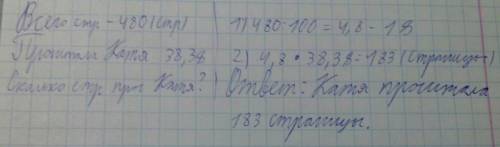 Всего стр - 480 (стр)
Прочитала Катя 38,3%
Сколько стр про Катя?
1) 480:100 = 4,8 - 1%
2) 4,8 • 38,3% = 183 (страницы)
Ответ: Катя прочитала
183 страницы.